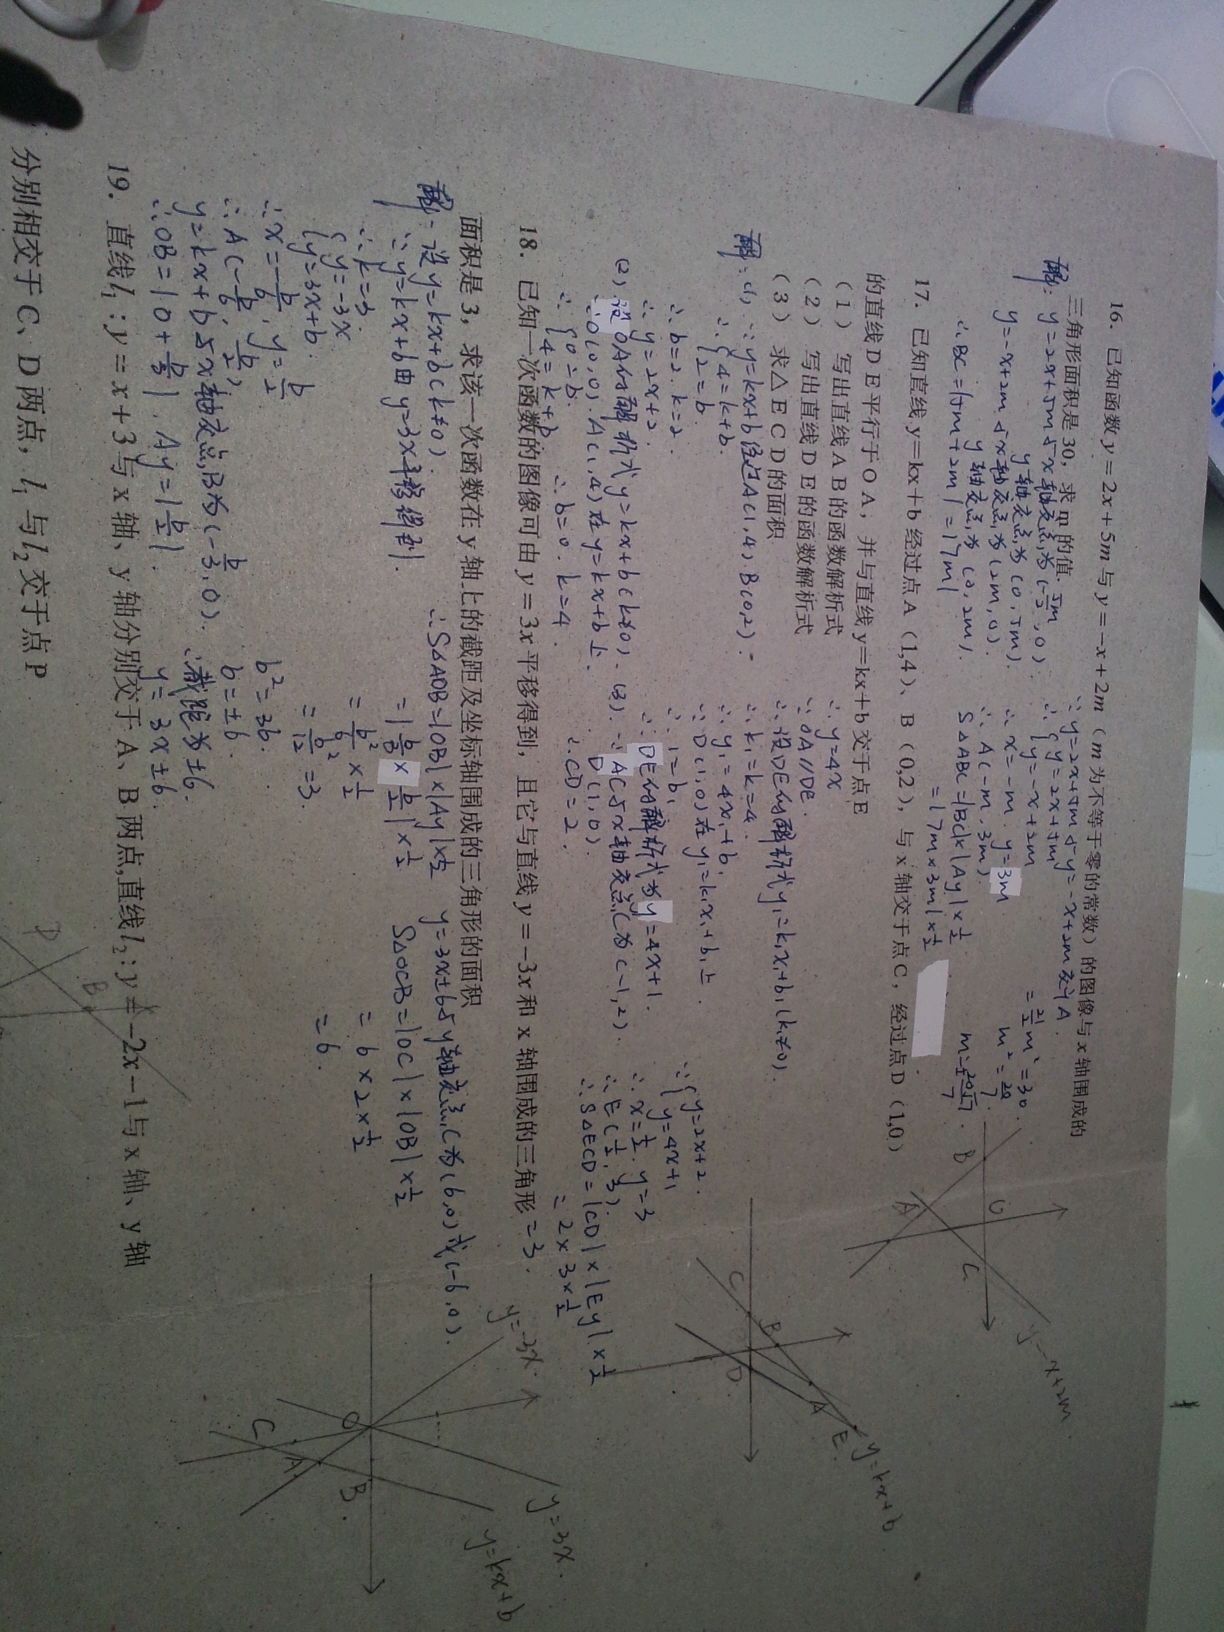 16. 已知函数 y = 2x + 5m 与 y = -x + 2m（m 为不等于零的常数）的图像与 x 轴围成的
三角形面积是 30, 求 m 的值.
解: y=2x+5m与x轴交点为(-5m/2,0)
y轴交点为(0,5m).
y=-x+2m与x轴交点为(2m,0).
y轴交点为(0,2m).
∴BC=|5m+2m|=|7m|
∵y=2x+5m与y=-x+2m交于A.
∴{y=2x+5m
y=-x+2m
∴x=-m y=3m
∴A(-m,3m).
S△ABC=|BC|×|Ay|×1/2
=|7m×3m|×1/2
=21/2m²=30.
m²=20/7.
O
B
A
C
y=-x+2m
17. 已知直线 y=kx+b 经过点 A（1,4）、B（0,2），与 x 轴交于点 C，经过点 D（1,0）
的直线 D E 平行于 O A，并与直线 y=kx+b 交于点 E
（1） 写出直线 A B 的函数解析式
（2） 写出直线 D E 的函数解析式
（3） 求△ E C D 的面积
解:(1)∵y=kx+b经过A(1,4),B(0,2).
∴{4=k+b.
2=b.
∴b=2.k=2
∴y=2x+2.
(2)设OA的解析式y=kx+b(k≠0).
∵O(0,0).A(1,4)在y=kx+b上.
∴{0=b.
4=k+b
∴b=0.k=4.
∴y=4x
∵OA//DE.
∴设DE的解析式y₁=k₁x₁+b₁(k₁≠0).
∴k₁=k=4.
∴y₁=4x₁+b₁
∵D(1,0)在y₁=k₁x₁+b₁上.
∴1=b₁
∴DE的解析式为y=4x+1.
(3).∵AC与x轴交点C为(-1,2).
D(1,0).
∴CD=2.
∴{y=2x+2.
y=4x+1
∴x=1/2.y=3
∴E(1/2,3).
∴S△ECD=|CD|×|Ey|×1/2
=2×3×1/2
=3.
C
B
D
A
E
y=kx+b
18. 已知一次函数的图像可由 y = 3x 平移得到，且它与直线 y = -3x 和 x 轴围成的三角形
面积是 3, 求该一次函数在 y 轴上的截距及坐标轴围成的三角形的面积
解:设y=kx+b(k≠0).
∵y=kx+b由y=3x平移得到.
∴k=3.
{y=-3x
y=3x+b.
∴x=-b/6,y=b/2
∴A(-b/6,b/2)
y=kx+b与x轴交点B为(-b/3,0).
∴OB=|0+b/3|.Ay=|b/2|.
∴S△AOB=|OB|×|Ay|×1/2
=|b/3×b/2|×1/2
=b²/6×1/2
=b²/12=3.
b²=36.
b=±6.
∴截距为±6.
y=3x±6.
y=3x±6与y轴交点C为(6,0)或(-6,0).
S△OCB=|OC|×|OB|×1/2
=6×2×1/2
=6.
y=-3x.
O
C
A
B
y=3x.
y=kx+b
19. 直线 l₁: y = x + 3 与 x 轴、y 轴分别交于 A、B 两点,直线 l₂: y = -2x - 1 与 x 轴、y 轴
分别相交于 C、D 两点，l₁ 与 l₂ 交于点 P
P
B